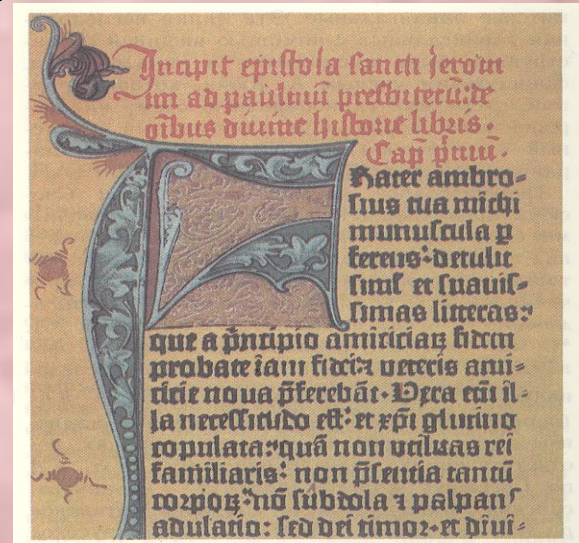 Incipit epistola sancti Jeroni
mi ad paulinū presbiterū: de
oībus divine historie libris.
Cap̄ p̄mū.
Frater ambro=
sius tua michi
munuscula ꝑ
ferens: detulit
siml' et suavis=
simas litteras:
que a p̄ncipio amiciciaꝝ fidem
probate iam fidei: ⁊ veteris ami=
ticie nova p̄ferebāt. Vera eni il=
la necessitudo est: et xp̄i glutino
copulata: quā non utilitas rei
familiaris: non p̄sentia tantū
corpoꝝ: nō subdola ⁊ palpans
adulatio: sed dei timor. et divi=